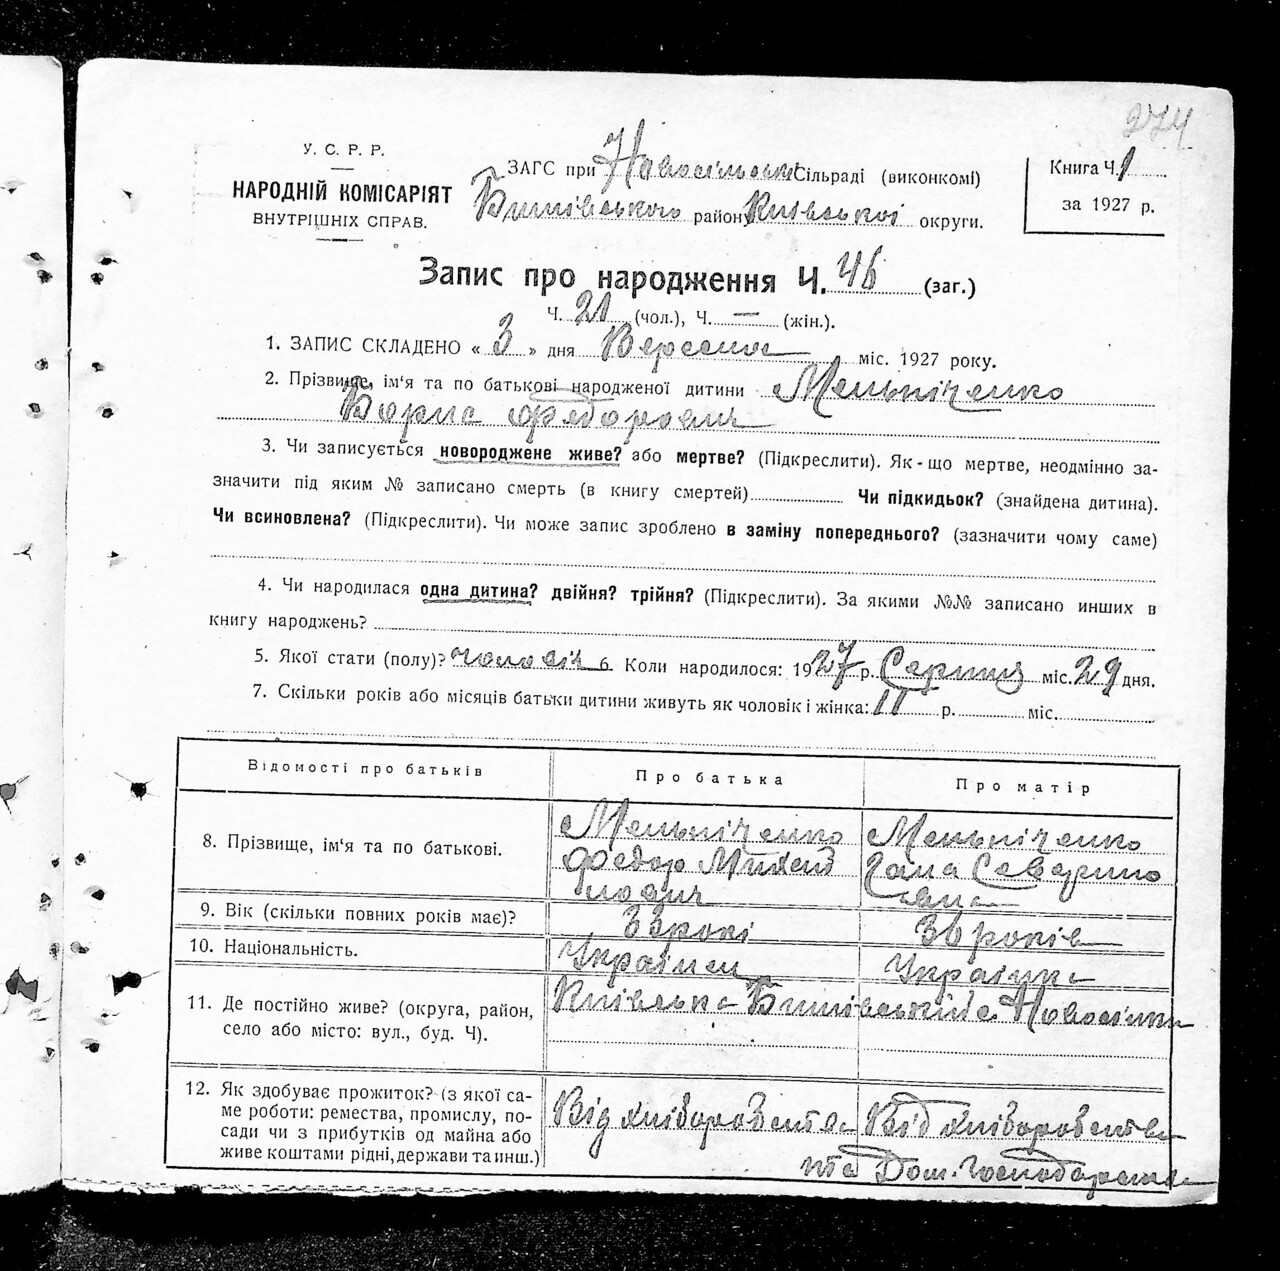 274
У. С. Р. Р.
НАРОДНІЙ КОМІСАРІЯТ
ВНУТРІШНІХ СПРАВ.
ЗАГС при Новосільській Сільраді (виконкомі)
Бишівського район Київської округи.
Книга Ч. 1
за 1927 р.
Запис про народження Ч. 46 (заг.)
Ч. 21 (чол.), Ч. — (жін.).
1. ЗАПИС СКЛАДЕНО « 3 » дня Вересня міс. 1927 року.
2. Прізвище, ім'я та по батькові народженої дитини Мельніченко
Борис Федорович
3. Чи записується новороджене живе? або мертве? (Підкреслити). Як-що мертве, неодмінно за-
значити під яким № записано смерть (в книгу смертей) Чи підкидьок? (знайдена дитина).
Чи всиновлена? (Підкреслити). Чи може запис зроблено в заміну попереднього? (зазначити чому саме)
4. Чи народилася одна дитина? двійня? трійня? (Підкреслити). За якими №№ записано инших в
книгу народжень?
5. Якої стати (полу)? чоловіч 6. Коли народилося: 1927 р. Серпня міс. 29 дня.
7. Скільки років або місяців батьки дитини живуть як чоловік і жінка: 11 р. міс.
Відомості про батьків Про батька Про матір
8. Прізвище, ім'я та по батькові. Мельніченко Федор Михайлович Мельніченко Гана Севериновна
9. Вік (скільки повних років має)? 33 рокі 36 років
10. Національність. Українец Українка
11. Де постійно живе? (округа, район, село або місто: вул., буд. Ч). Київська Бишівський с Новосілки
12. Як здобуває прожиток? (з якої са-
ме роботи: ремества, промислу, по-
сади чи з прибутків од майна або
живе коштами рідні, держави та инш.) Від хліборобства Від хліборобства
та Дом. Господарства